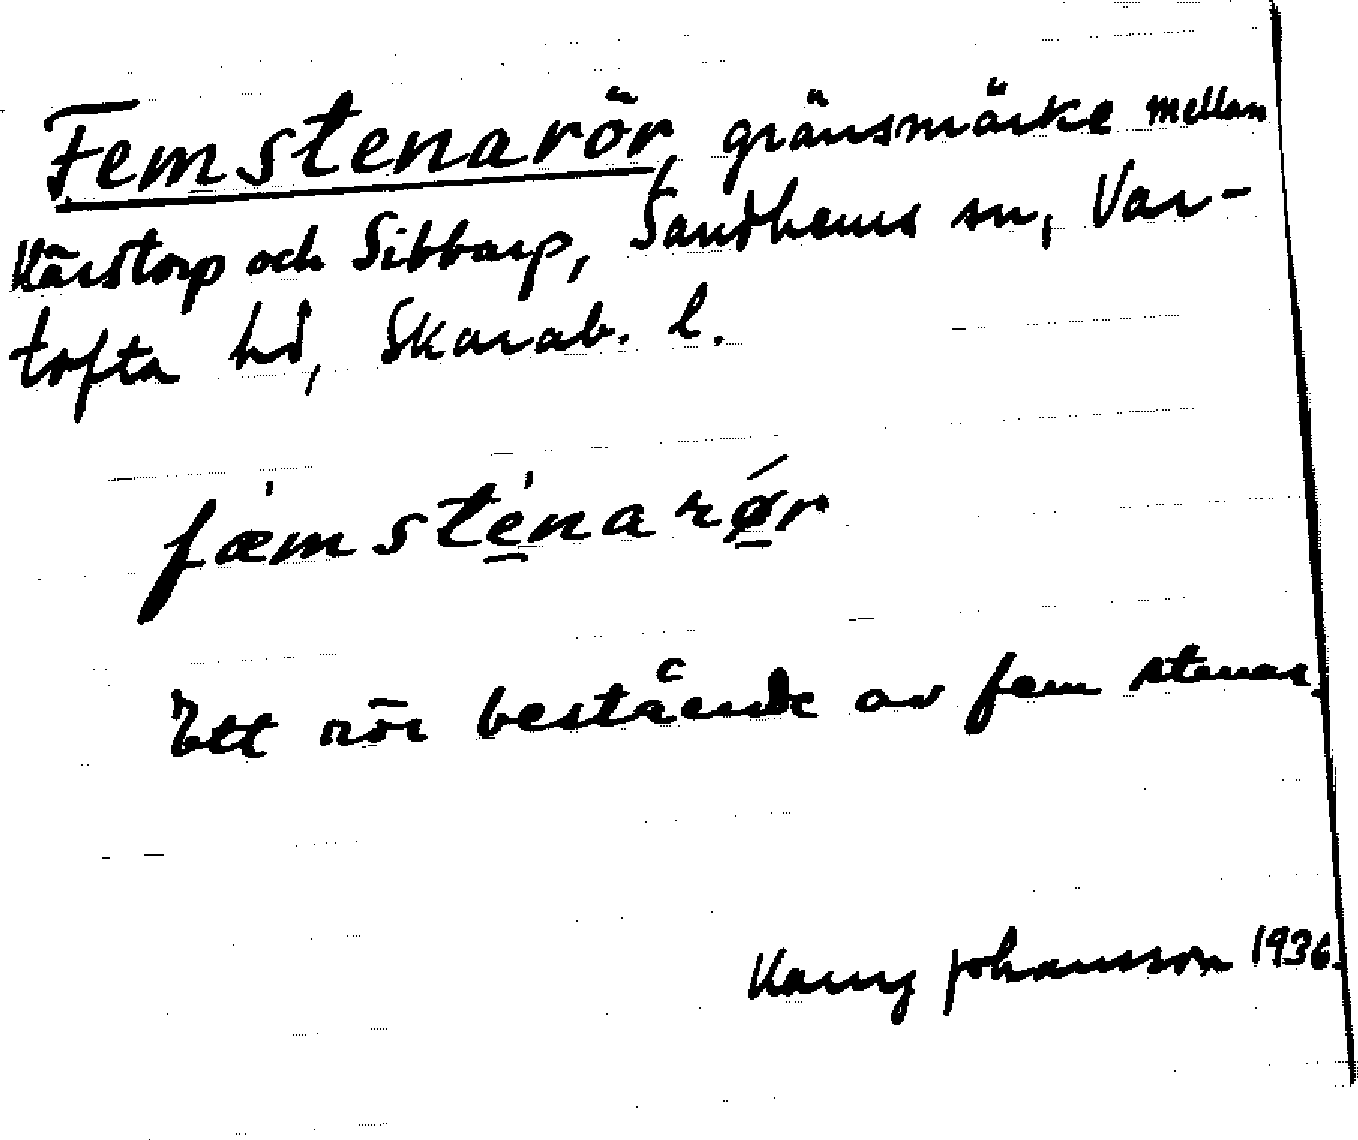 Femstenarör, gränsmärke mellan
Kärstorp och Sibbarp, Sandhems sn, Var-
tofta hd, Skarab. l.
fæmste̱narø̱r
Ett rör bestående av fem stenar.
Johansson 1936.